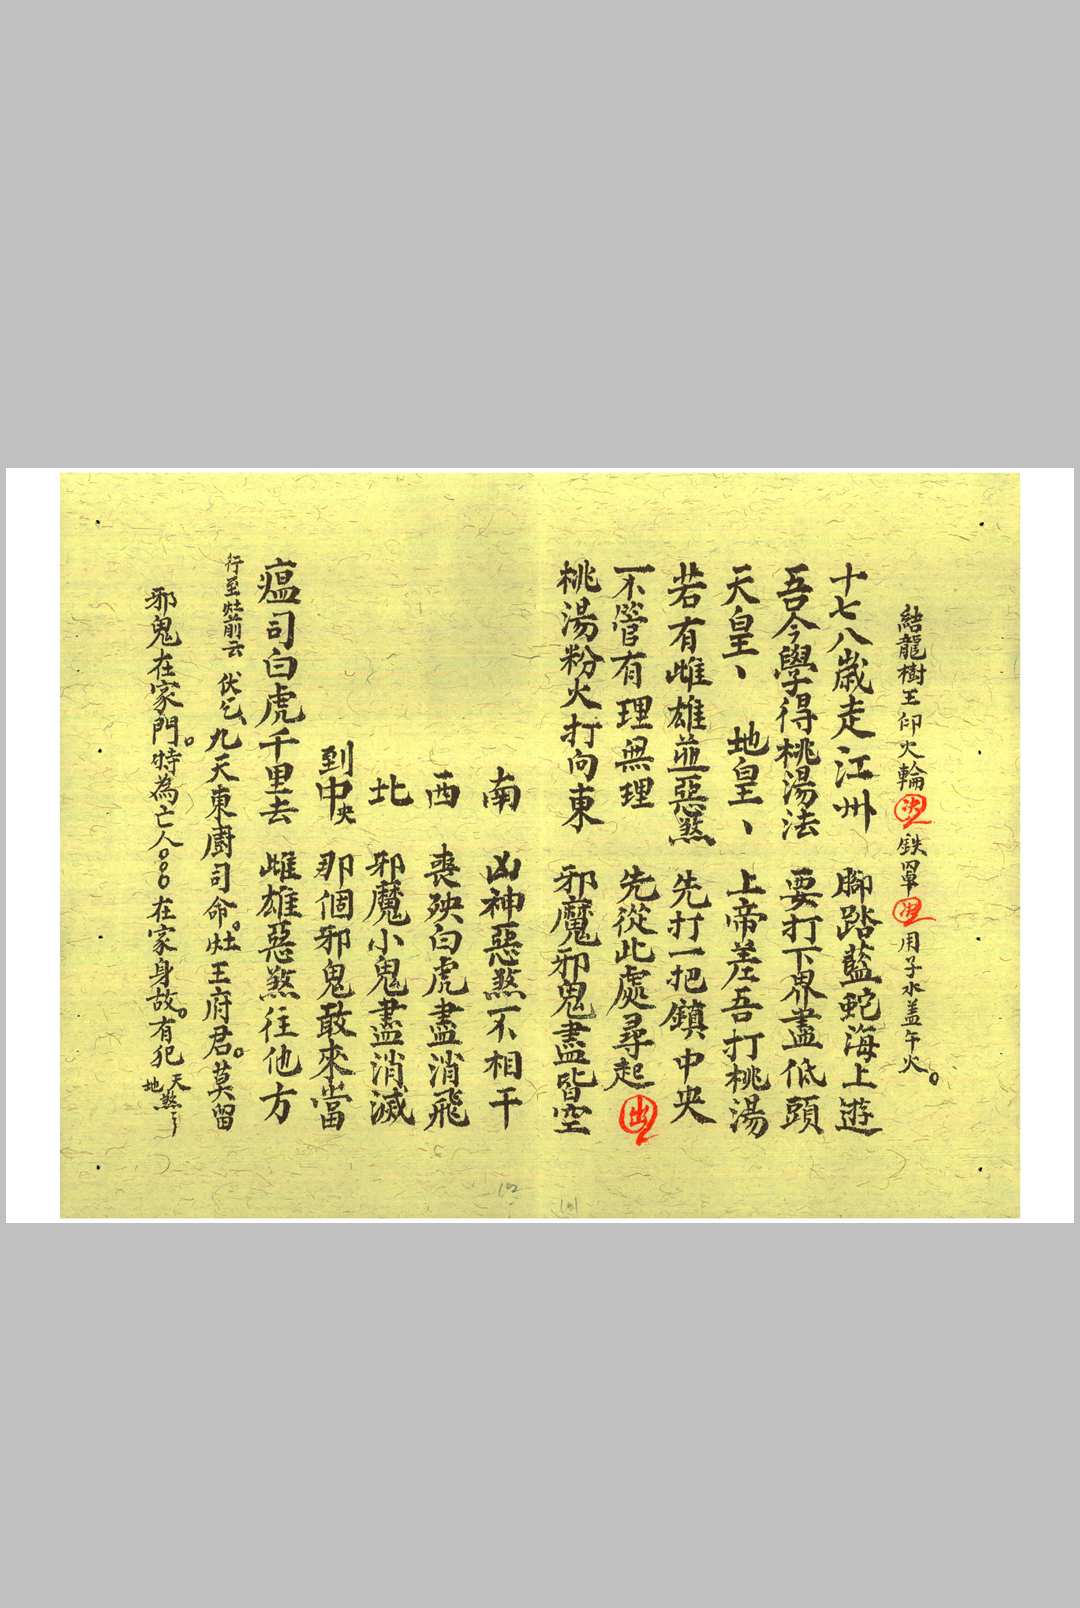 結龍樹王印火輪決鉄罩決用子水盖午火。
十七八歲走江州 脚踏藍蛇海上遊
吾今學得桃湯法 要打下界盡低頭
天皇、 地皇、 上帝差吾打桃湯
若有雌雄並惡煞 先打一把鎮中央
不管有理無理 先從此處尋起 出
桃湯粉火打向東 邪魔邪鬼盡皆空
南 凶神惡煞不相干
西 喪殃白虎盡消飛
北 邪魔小鬼盡消滅
到中央 那個邪鬼敢來當
瘟司白虎千里去 雌雄惡煞往他方
行至灶前云 伏乞
九天東廚司命。灶王府君。莫留
邪鬼在家門。特為亡人。。。在家身故。有犯天煞地煞
102
101